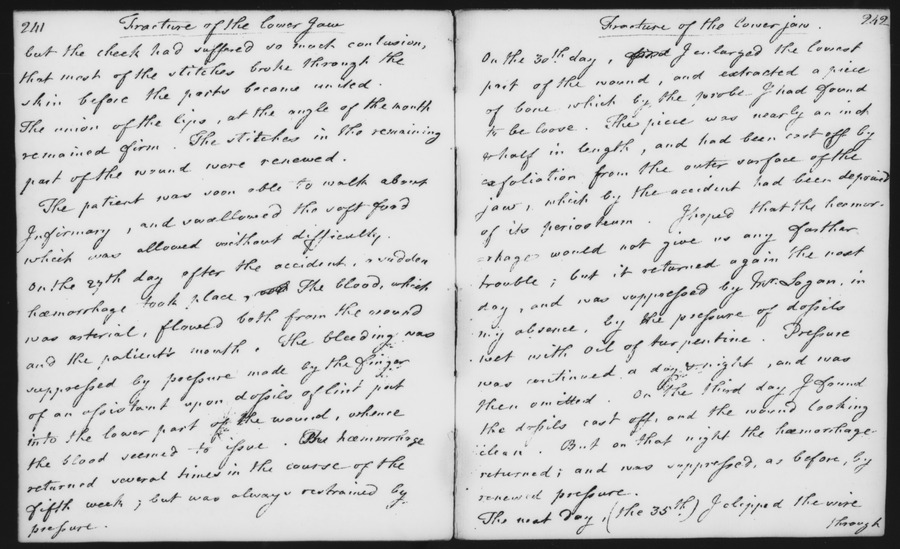 241
Fracture of the lower Jaw
but the cheek had suffered so much contusion,
that most of the stitches broke through the
skin before the parts became united.
The union of the lips, at the angle of the mouth
remained firm. The stitches in the remaining
part of the wound were renewed.
The patient was soon able to walk about
Infirmary, and swallowed the soft food
which was allowed without difficulty.
On the 29th day after the accident, a sudden
hæmorrhage took place, The blood, which
was arterial, flowed both from the wound
and the patient's mouth. The bleeding was
suppressed by pressure made by the finger
of an assistant upon dossils of lint put
into the lower part of the wound, whence
the blood seemed to issue. The hæmorrhage
returned several times in the course of the
fifth week; but was always restrained by
pressure.
242
Fracture of the lower jaw.
On the 30th day, I enlarged the lowest
part of the wound, and extracted a piece
of bone which by the probe I had found
to be loose. The piece was nearly an inch
& half in length, and had been cast off by
exfoliation from the outer surface of the
jaw, which by the accident had been deprived
of its periosteum. I hoped that the hæmor-
-rhage would not give us any farther
trouble; but it returned again the next
day, and was suppressed by Mr. Logan, in
my absence, by the pressure of dossils
wet with oil of turpentine. Pressure
was continued a day & night, and was
then omitted. On the third day I found
the dossils cast off, and the wound looking
clean. But on that night the hæmorrhage
returned; and was suppressed, as before, by
renewed pressure.
The next day, (the 35th) I clipped the wire
through